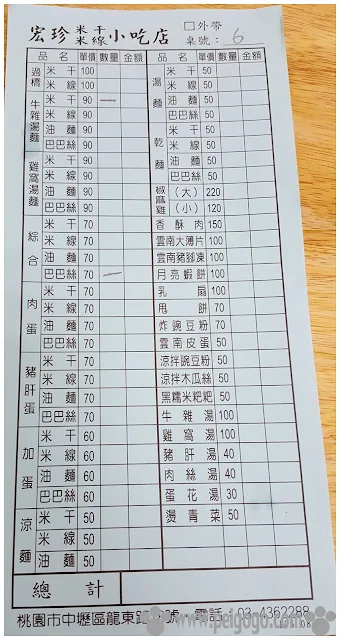 宏珍 米干 米線 小吃店 □外帶
桌號：6
品名 單價 數量 金額 品名 單價 數量 金額
過橋 米干 100 湯麵 米干 50
米線 100 米線 50
牛雜湯麵 米干 90 一 油麵 50
米線 90 巴巴絲 50
油麵 90 乾麵 米干 50
巴巴絲 90 米線 50
雞窩湯麵 米干 90 油麵 50
米線 90 巴巴絲 50
油麵 90 椒麻雞 （大） 220
巴巴絲 90 （小） 120
綜合 米干 70 香酥肉 150
米線 70 雲南大薄片 100
油麵 70 雲南豬腳凍 100
巴巴絲 70 一 月亮蝦餅 100
肉蛋 米干 70 乳扇 100
米線 70 甩餅 70
油麵 70 炸豌豆粉 70
巴巴絲 70 雲南皮蛋 50
豬肝蛋 米干 70 涼拌豌豆粉 50
米線 70 涼拌木瓜絲 50
油麵 70 黑糯米粑粑 50
巴巴絲 70 牛雜湯 100
加蛋 米干 60 雞窩湯 100
米線 60 豬肝湯 40
油麵 60 肉絲湯 40
巴巴絲 60 蛋花湯 30
涼麵 米干 50 燙青菜 50
米線 50
油麵 50
總計
桃園市中壢區龍東路 號 電話：03-4362288
www.peigogo.com